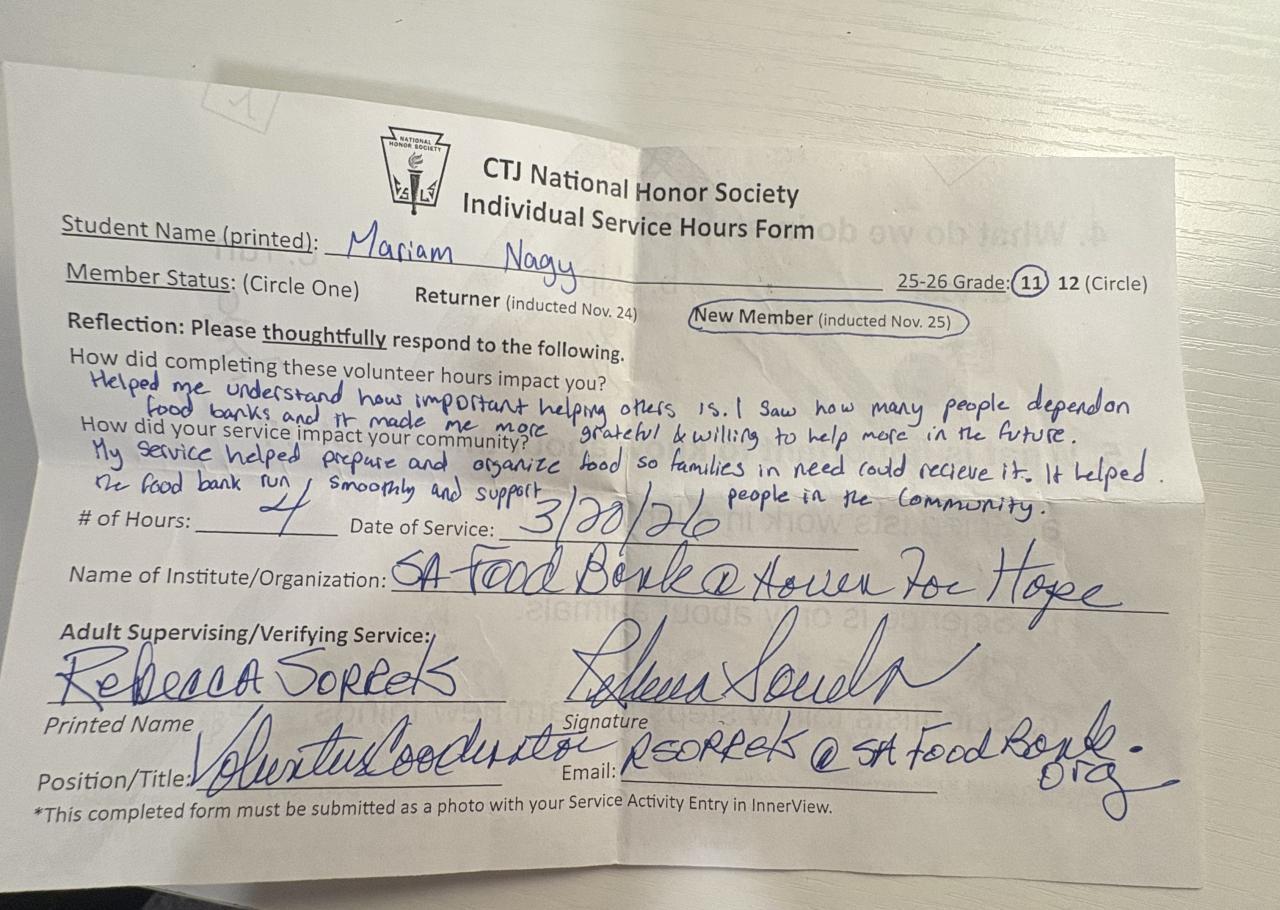 NATIONAL
HONOR SOCIETY
CTJ National Honor Society
Individual Service Hours Form
Student Name (printed): Mariam Nagy
25-26 Grade: 11 12 (Circle)
Member Status: (Circle One) Returner (inducted Nov. 24) New Member (inducted Nov. 25)
Reflection: Please thoughtfully respond to the following.
How did completing these volunteer hours impact you?
Helped me understand how important helping others is. I saw how many people depend on
food banks and it made me more grateful & willing to help more in the future.
How did your service impact your community?
My service helped prepare and organize food so families in need could recieve it. It helped
the food bank run smoothly and support people in the community.
# of Hours: 4 Date of Service: 3/20/26
Name of Institute/Organization: SA Food Bank @ Haven For Hope
Adult Supervising/Verifying Service:
Rebecca Sorrels
Printed Name Signature
Position/Title: Volunteer Coordinator Email: RSORRELS @ SAFoodBank.
org
*This completed form must be submitted as a photo with your Service Activity Entry in InnerView.